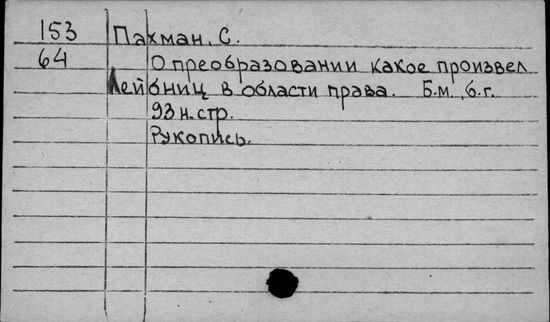 153 Пахман, С.
64 О преобразовании какое произвел
Лейбниц в области права. Б.м., б.г.
93 н.стр.
Рукопись.